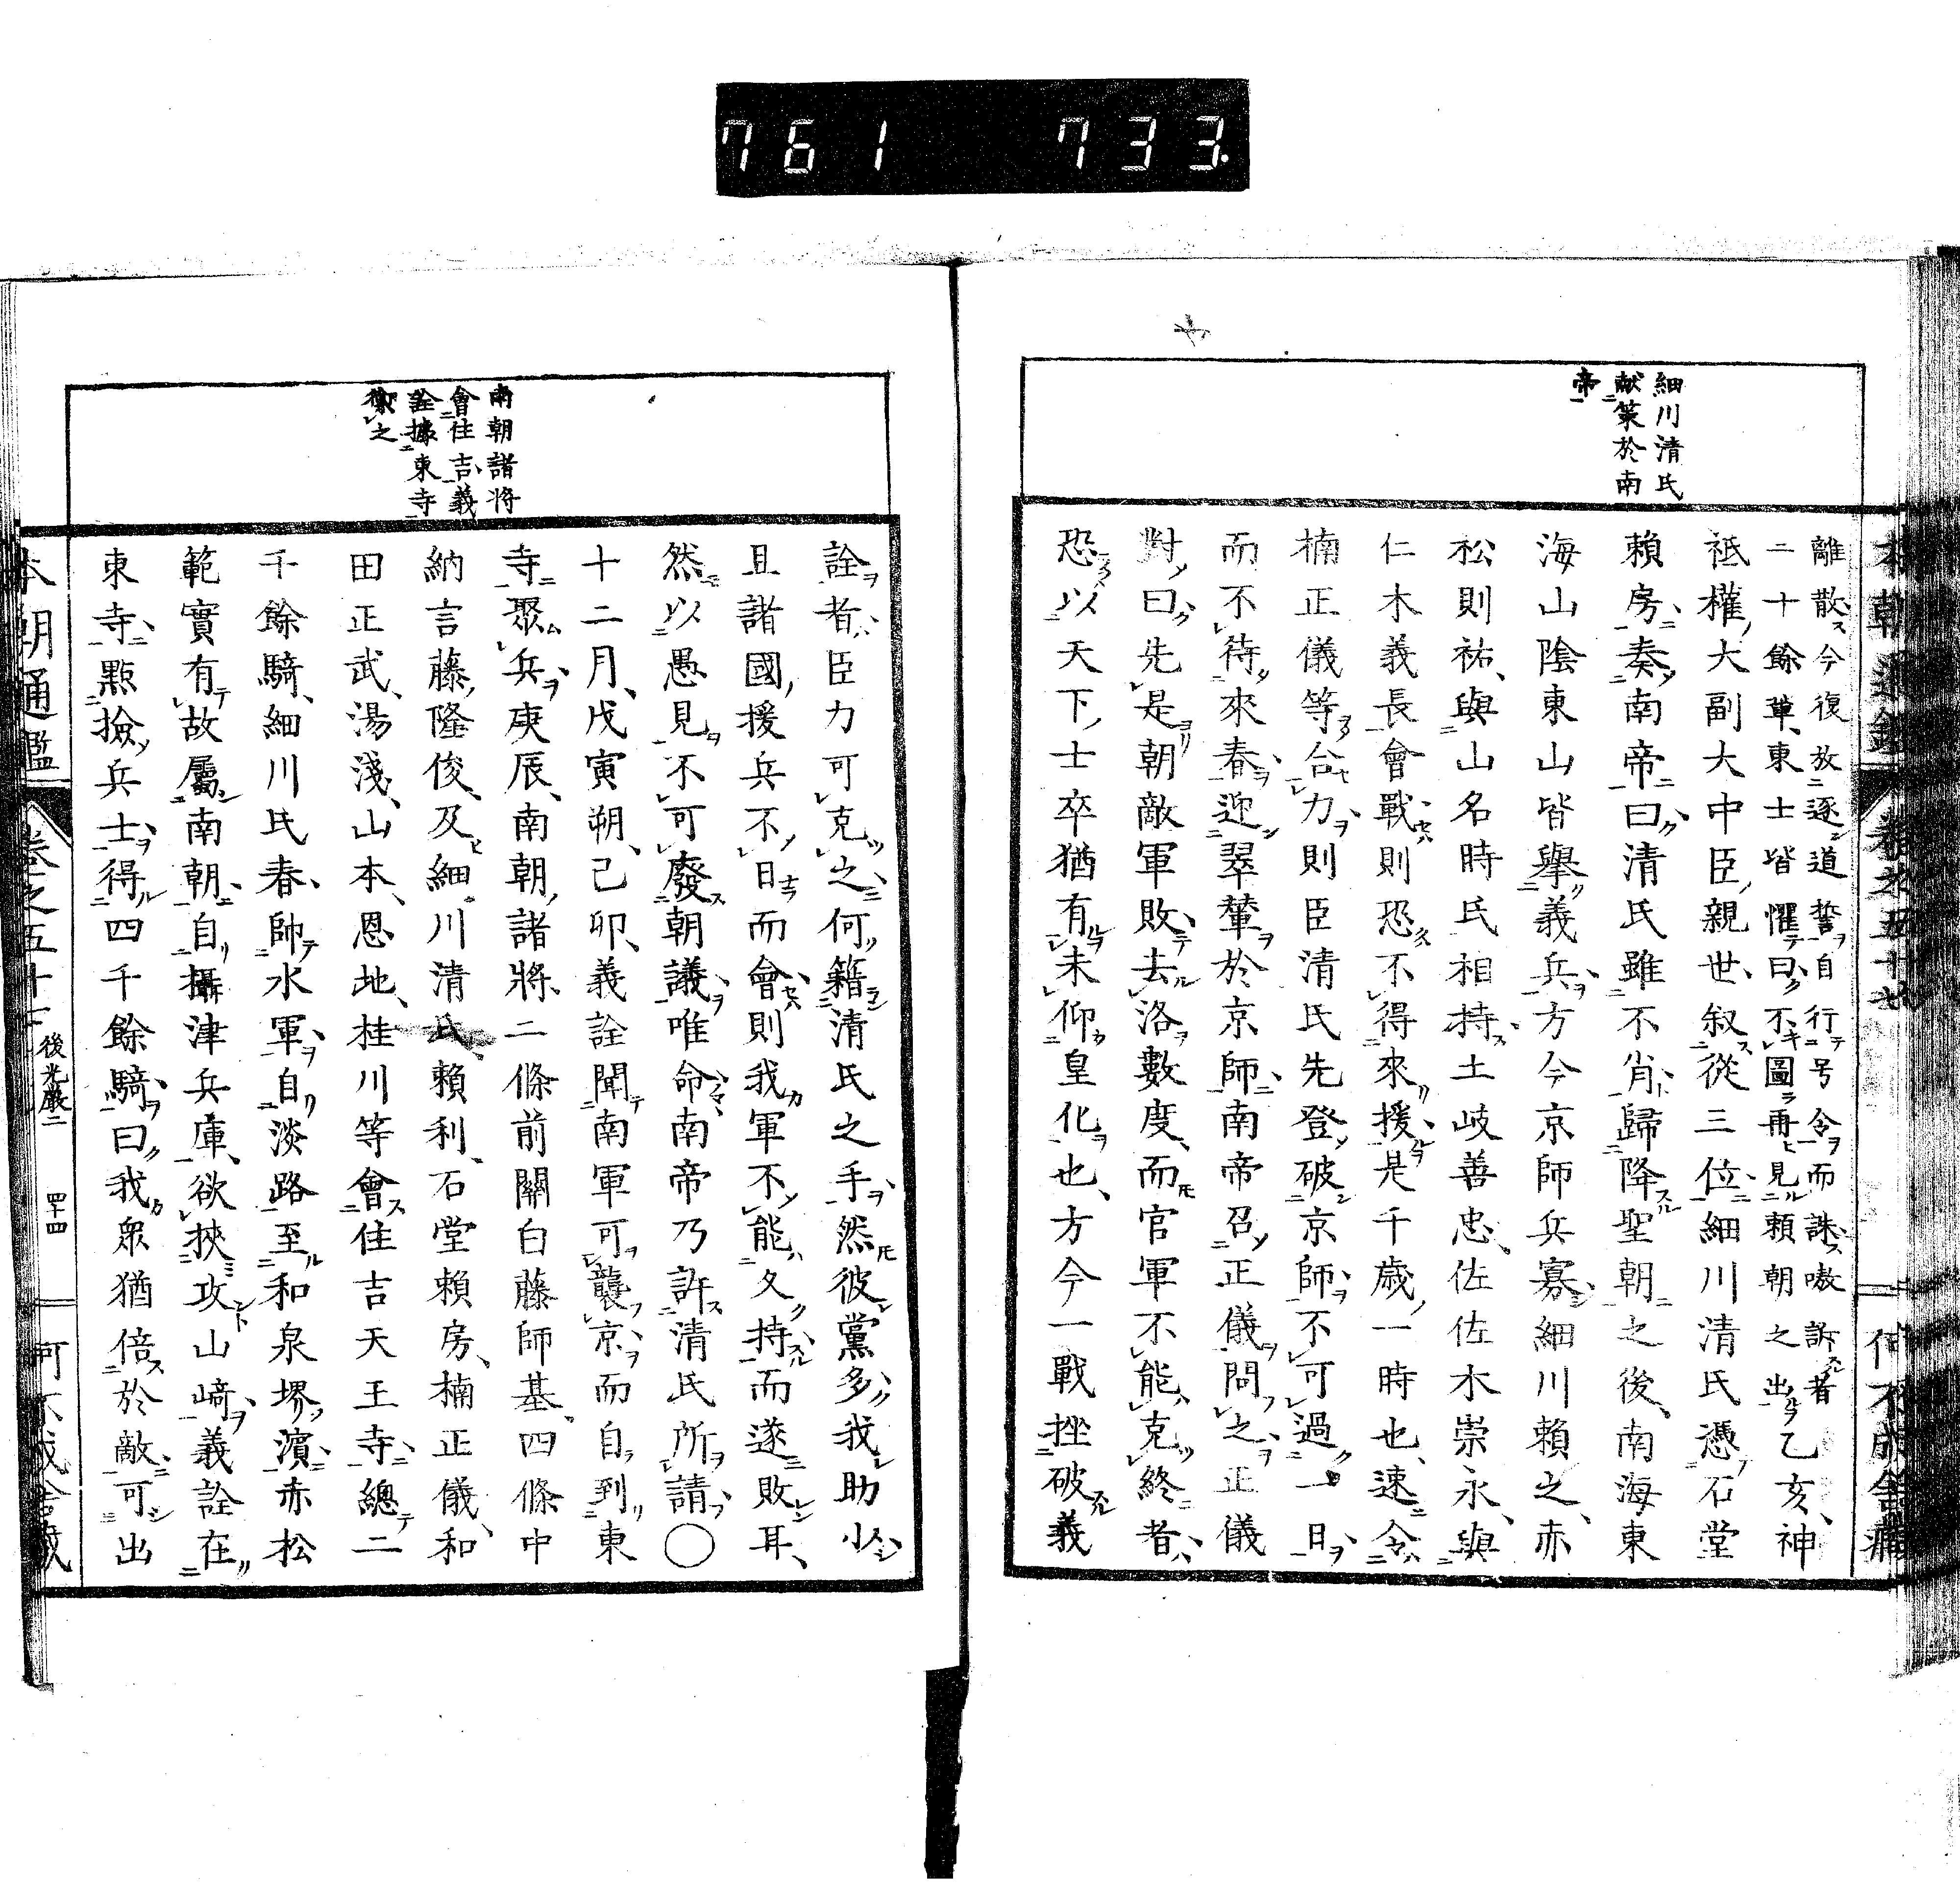 761 733.
細川清氏
献策於南
帝
離散今復放逐道誓自行号令而誅嗷訴者
二十餘輩東士皆懼曰不圖再見頼朝之出乙亥、神
祗權大副大中臣親世、叙從三位細川清氏憑石堂
頼房奏南帝曰清氏雖不肖歸降聖朝之後、南海東
海山陰東山皆擧義兵方今京師兵寡細川頼之、赤
松則祐、與山名時氏相持土岐善忠、佐佐木崇永、與
仁木義長會戰則恐不得來援是千歳一時也、速令
楠正儀等合力則臣清氏先登破京師不可過一日
而不待來春迎翠輦於京師南帝召正儀問之正儀
對曰先是朝敵軍敗去洛數度、而官軍不能克終者、
恐以天下士卒猶有未仰皇化也、方今一戰挫破義
南朝諸将
會住吉義
詮據東寺
禦之
詮者臣力可克之何籍清氏之手然彼黨多我助少
且諸國援兵不日而會則我軍不能久持而遂敗耳、
然以愚見不可廢朝議唯命南帝乃許清氏所請〇
十二月、戊寅朔、己卯、義詮聞南軍可襲京而自到東
寺聚兵庚辰、南朝諸將二條前關白藤師基、四條中
納言藤隆俊、及細川清氏、頼利、石堂頼房、楠正儀、和
田正武、湯淺、山本、恩地、桂川等會住吉天王寺總二
千餘騎、細川氏春、帥水軍自淡路至和泉堺濱赤松
範實有故屬南朝自攝津兵庫、欲挾攻山﨑義詮在
東寺點撿兵士得四千餘騎曰我衆猶倍於敵可出
本朝通鑑 卷之五十七 後光嚴二 四十四